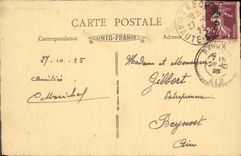 CARTE POSTALE
Correspondance
UNIS-FRANCE
Adresse
27.10.25
Amitiés
C. Maréchal
Madame et Monsieur
Gilbert
Entrepreneur
Beynost
Ain